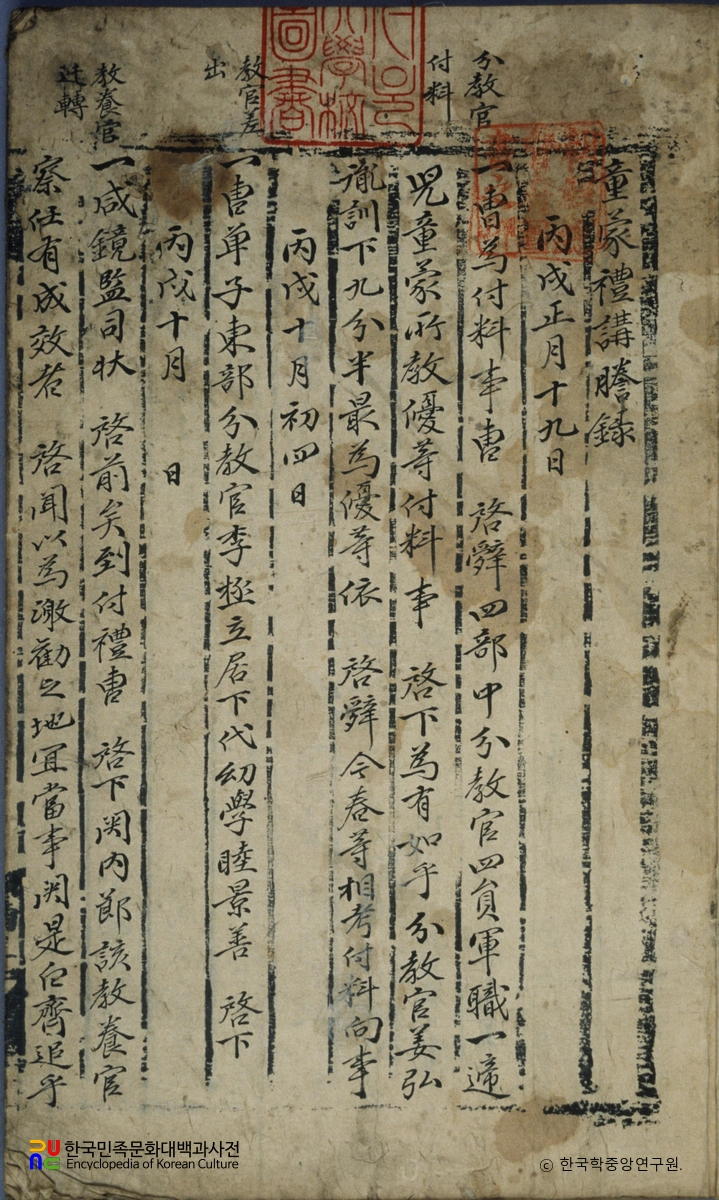 童蒙禮講謄錄
丙戌正月十九日
分教官
付料
一曹爲付料事曹 啓辭四部中分教官四員軍職一遞
兒童蒙所教優等付料事 啓下爲有如乎分教官姜弘
胤訓下九分半最爲優等依 啓辭今春等相考付料向事
丙戌十月初四日
教官差
出
一曹單子東部分教官李極立居下代幼學睦景善 啓下
丙戌十月 日
教養官
迁轉
一咸鏡監司狀 啓前矣到付禮曹 啓下關內節該教養官
察任有成效者 啓聞以爲激勸之地宜當事關是白齊追乎
帝國
大學校
圖書
한국민족문화대백과사전
Encyclopedia of Korean Culture
© 한국학중앙연구원.